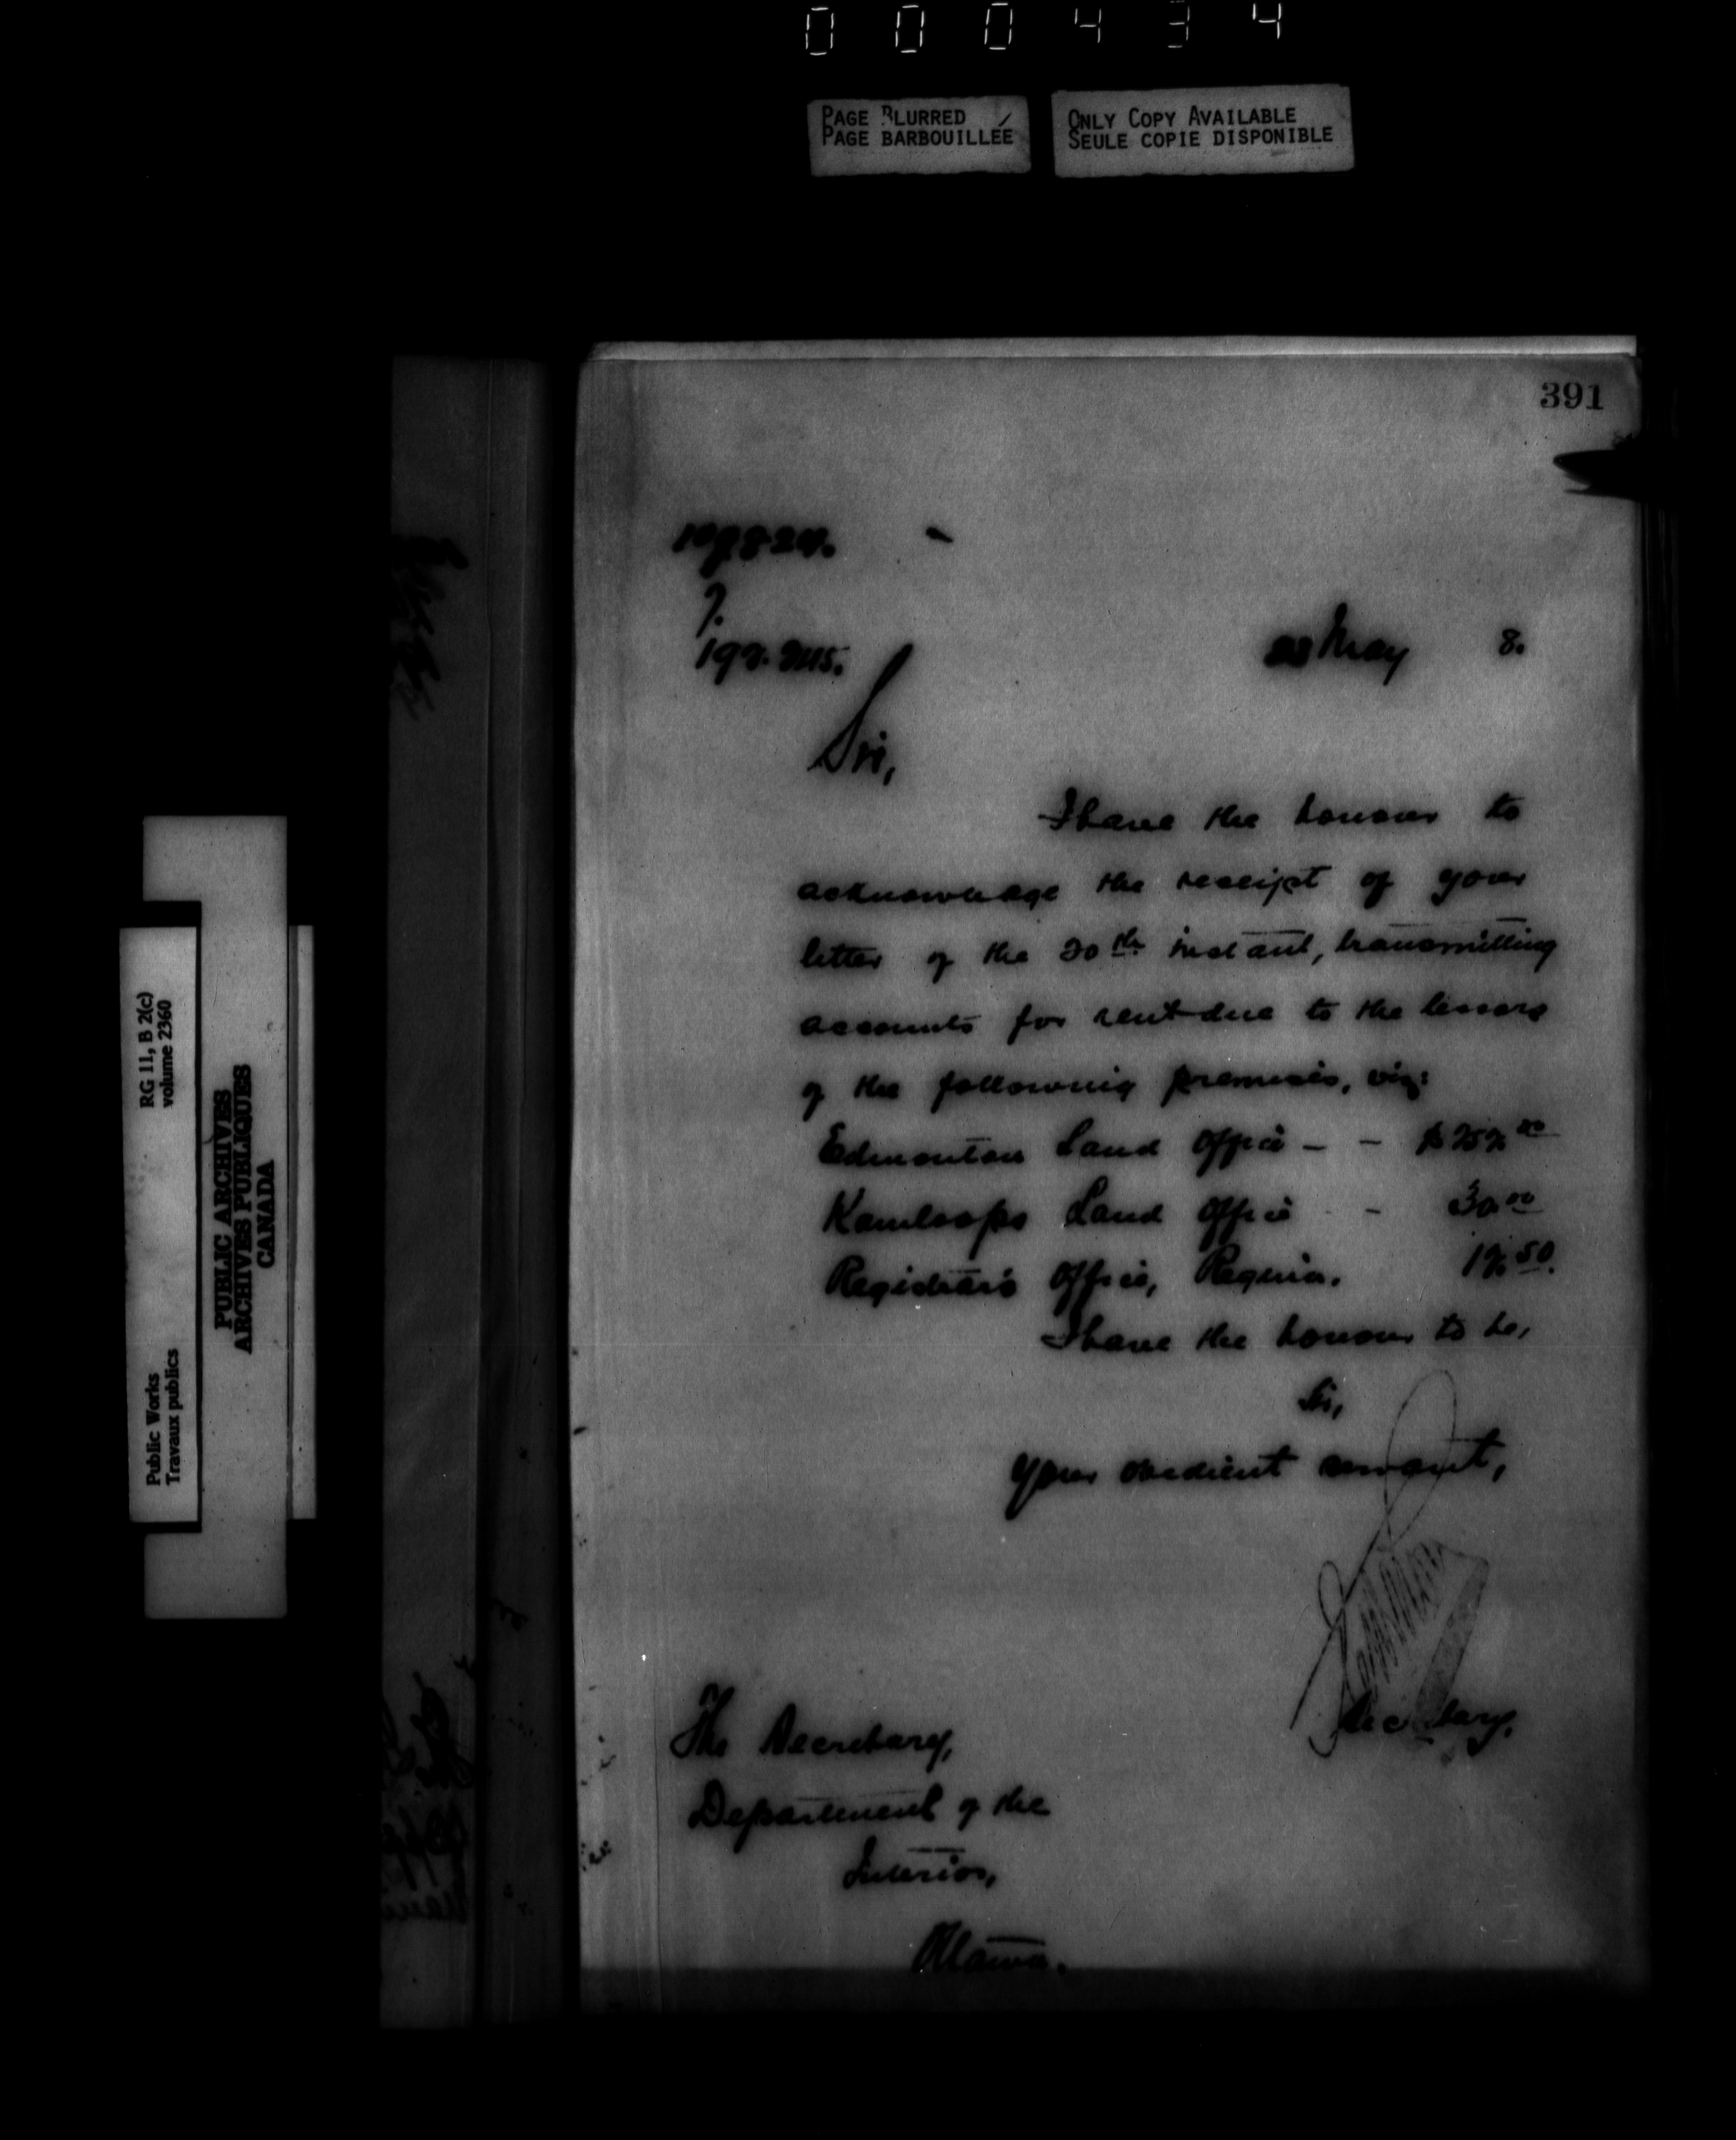 000434
PAGE BLURRED
PAGE BARBOUILLÉE
ONLY COPY AVAILABLE
SEULE COPIE DISPONIBLE
391
May 8.
Sir,
I have the honour to
acknowledge the receipt of your
letter of the 20th instant, transmitting
accounts for rent due to the lessors
of the following premises, viz:
Edmonton Land Office - -
Kamloops Land Office - - 30.00
Registrar's Office, Regina.
I have the honour to be,
Sir,
Your obedient servant,
Secretary.
The Secretary,
Department of the
Interior,
Ottawa.
RG 11, B 2(c)
volume 2360
Public Works
Travaux publics
PUBLIC ARCHIVES
ARCHIVES PUBLIQUES
CANADA